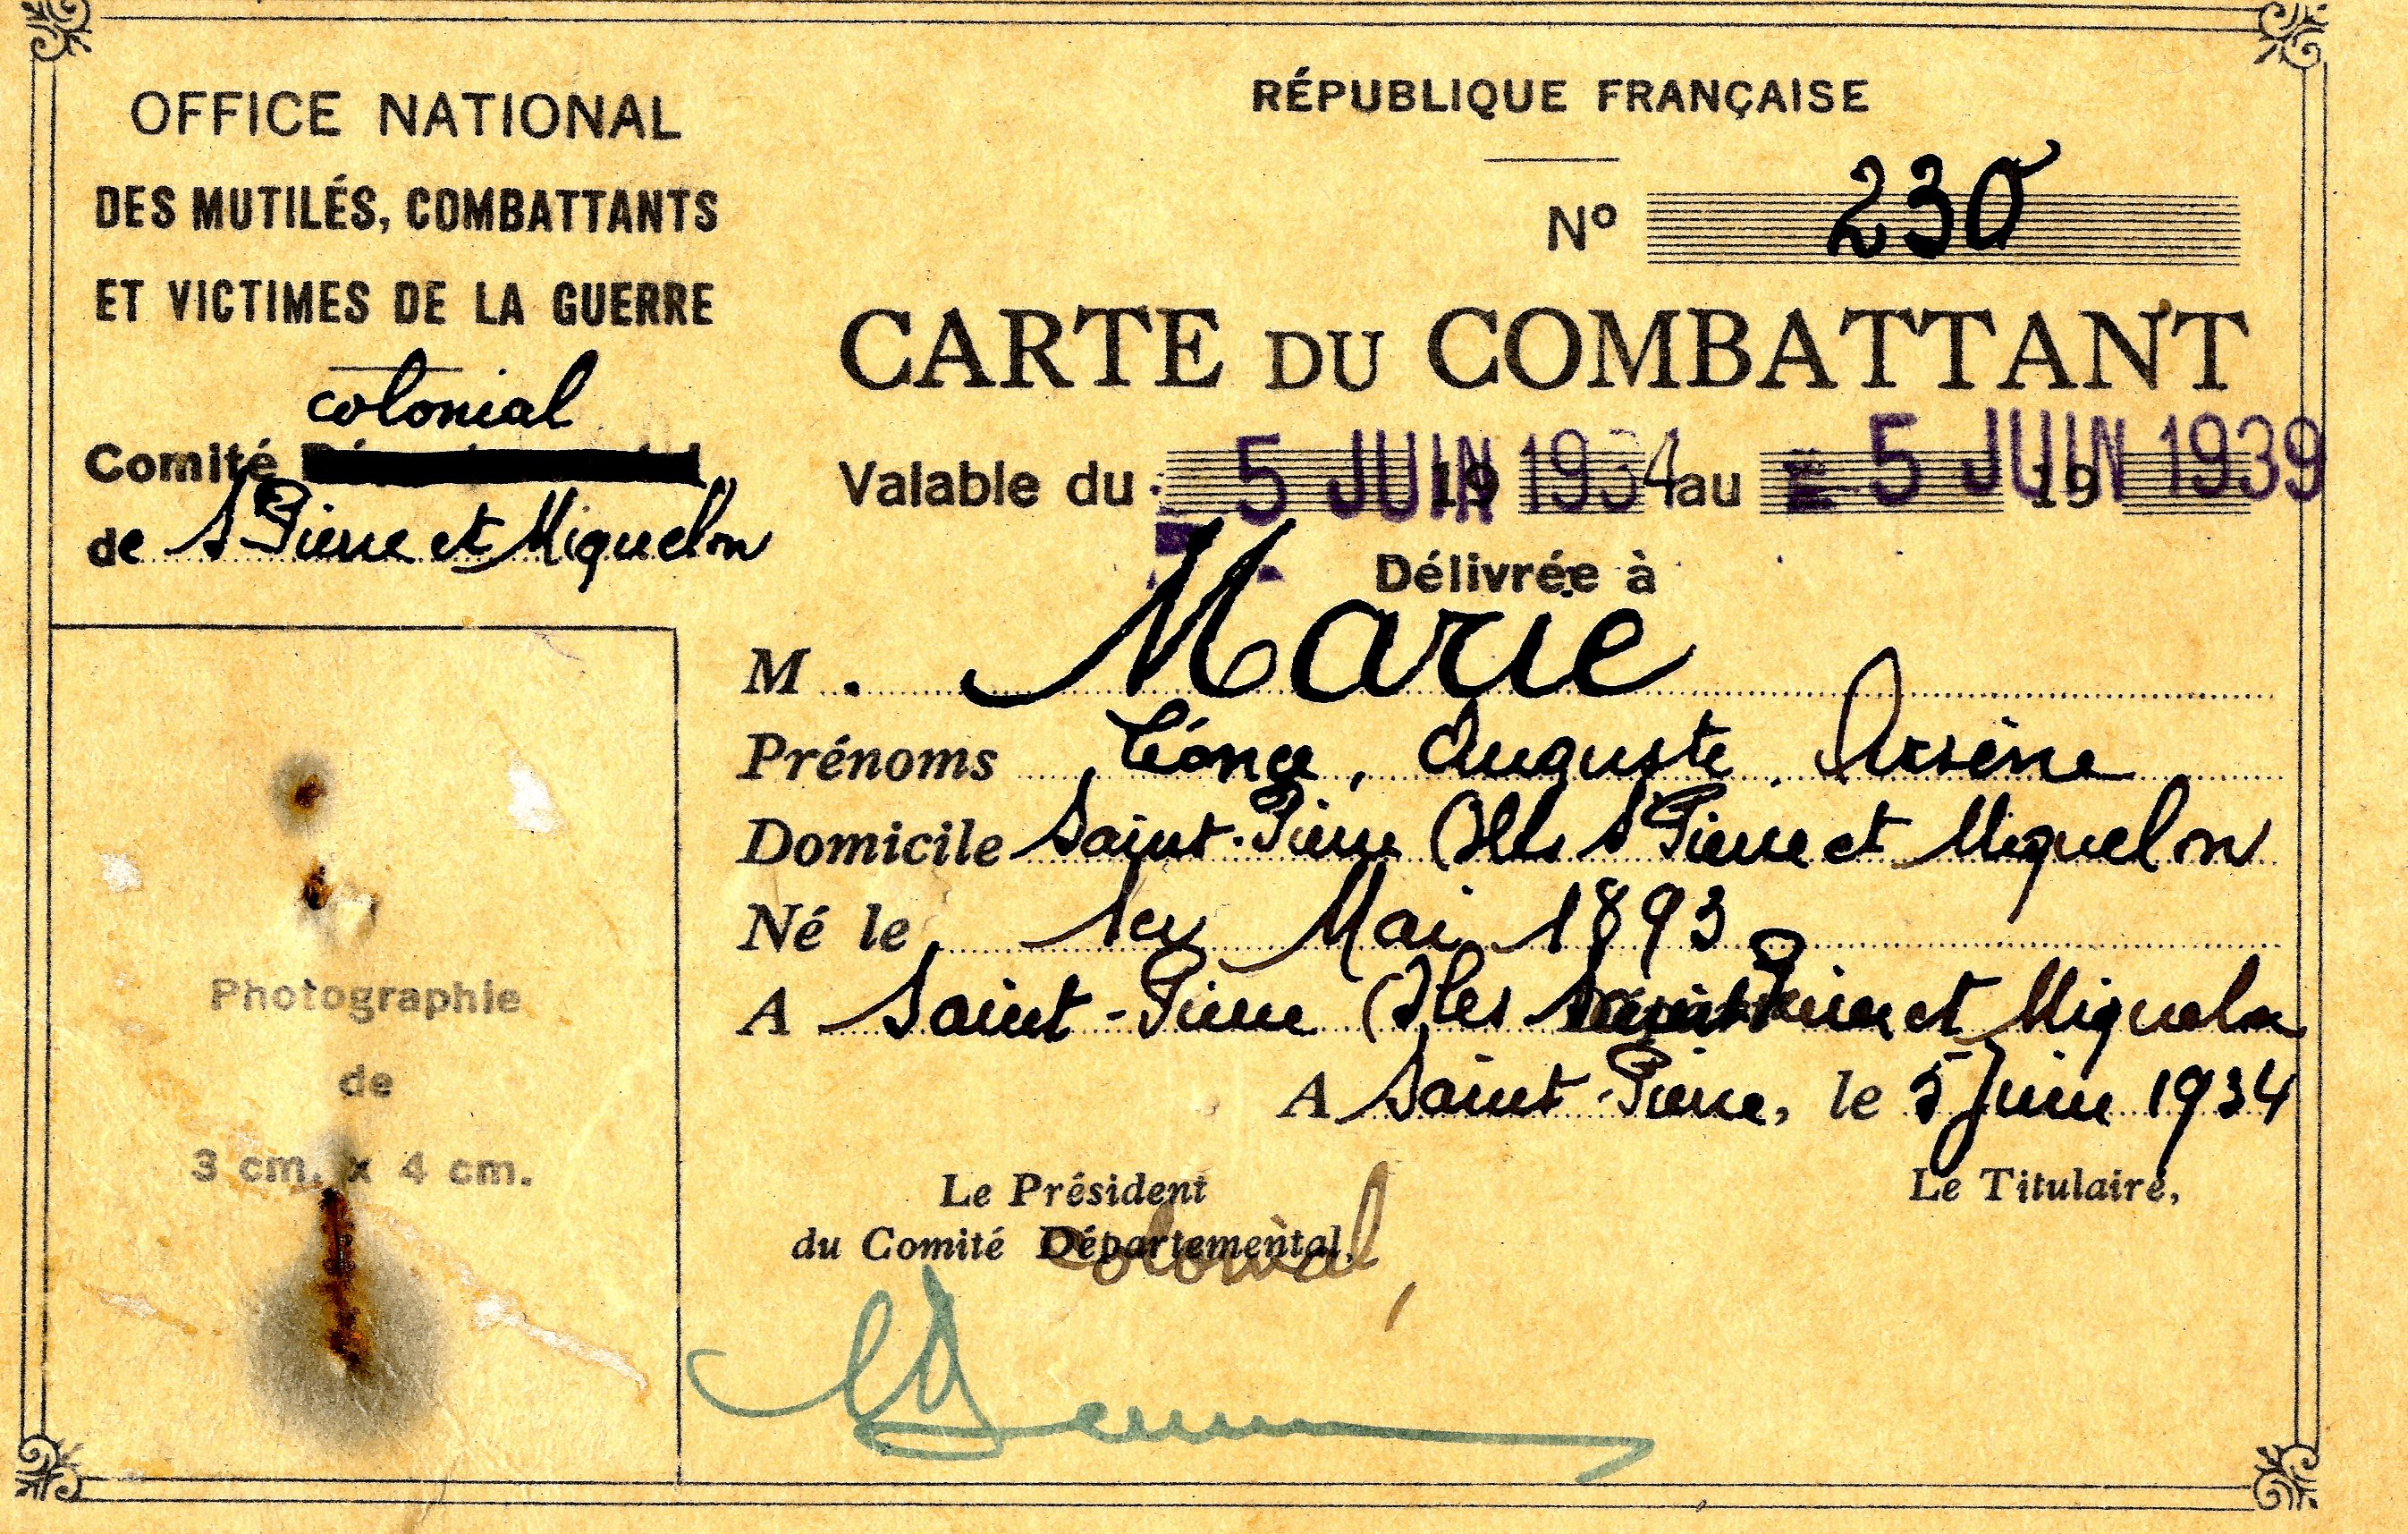 OFFICE NATIONAL
DES MUTILÉS, COMBATTANTS
ET VICTIMES DE LA GUERRE
colonial
Comité
de St Pierre et Miquelon
RÉPUBLIQUE FRANÇAISE
Nº 230
CARTE DU COMBATTANT
Valable du 5 JUIN 1934 au 5 JUIN 1939
Délivrée à
M. Marie
Prénoms Léonce, Auguste, Arsène
Domicile Saint-Pierre (Iles St Pierre et Miquelon
Né le 1er Mai 1893
A Saint-Pierre (Iles Saint Pierre et Miquelon
A Saint-Pierre, le 5 Juin 1934
Le Président
du Comité Départemental,
colonial,
Le Titulaire,
Photographie
de
3 cm. x 4 cm.